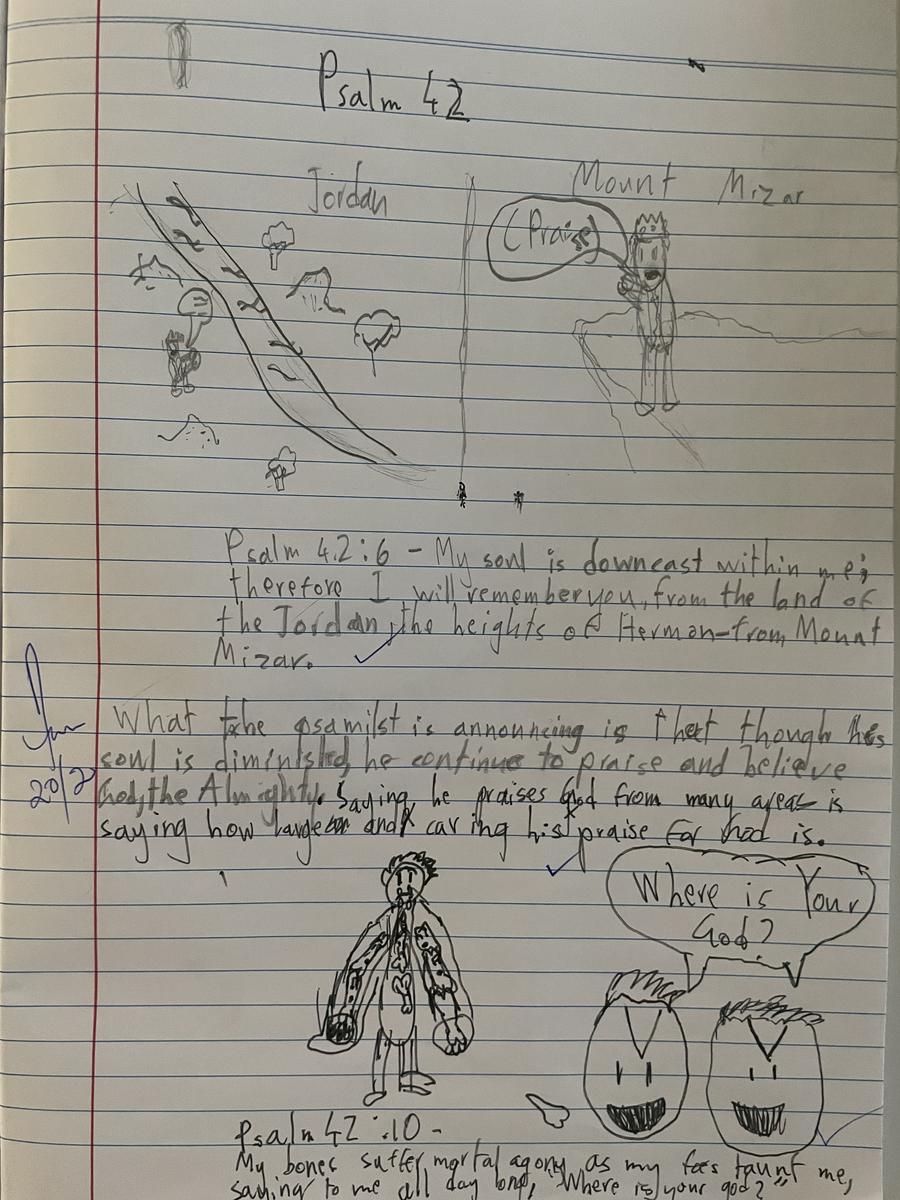 Psalm 42
Jordan
Mount Mizar
(Praise)
Psalm 42:6 - My soul is downcast within me;
therefore I will remember you, from the land of
the Jordan, the heights of Herman-from Mount
Mizar.
What the psamilst is announcing is that though his
soul is diminished, he continue to praise and believe
God, the Almighty. Saying he praises God from many areas is
saying how large and caring his praise for God is.
20/2
Where is Your
God?
Psalm 42:10 -
My bones suffer mortal agony as my foes taunt me,
saying to me all day long, "Where is your god?"